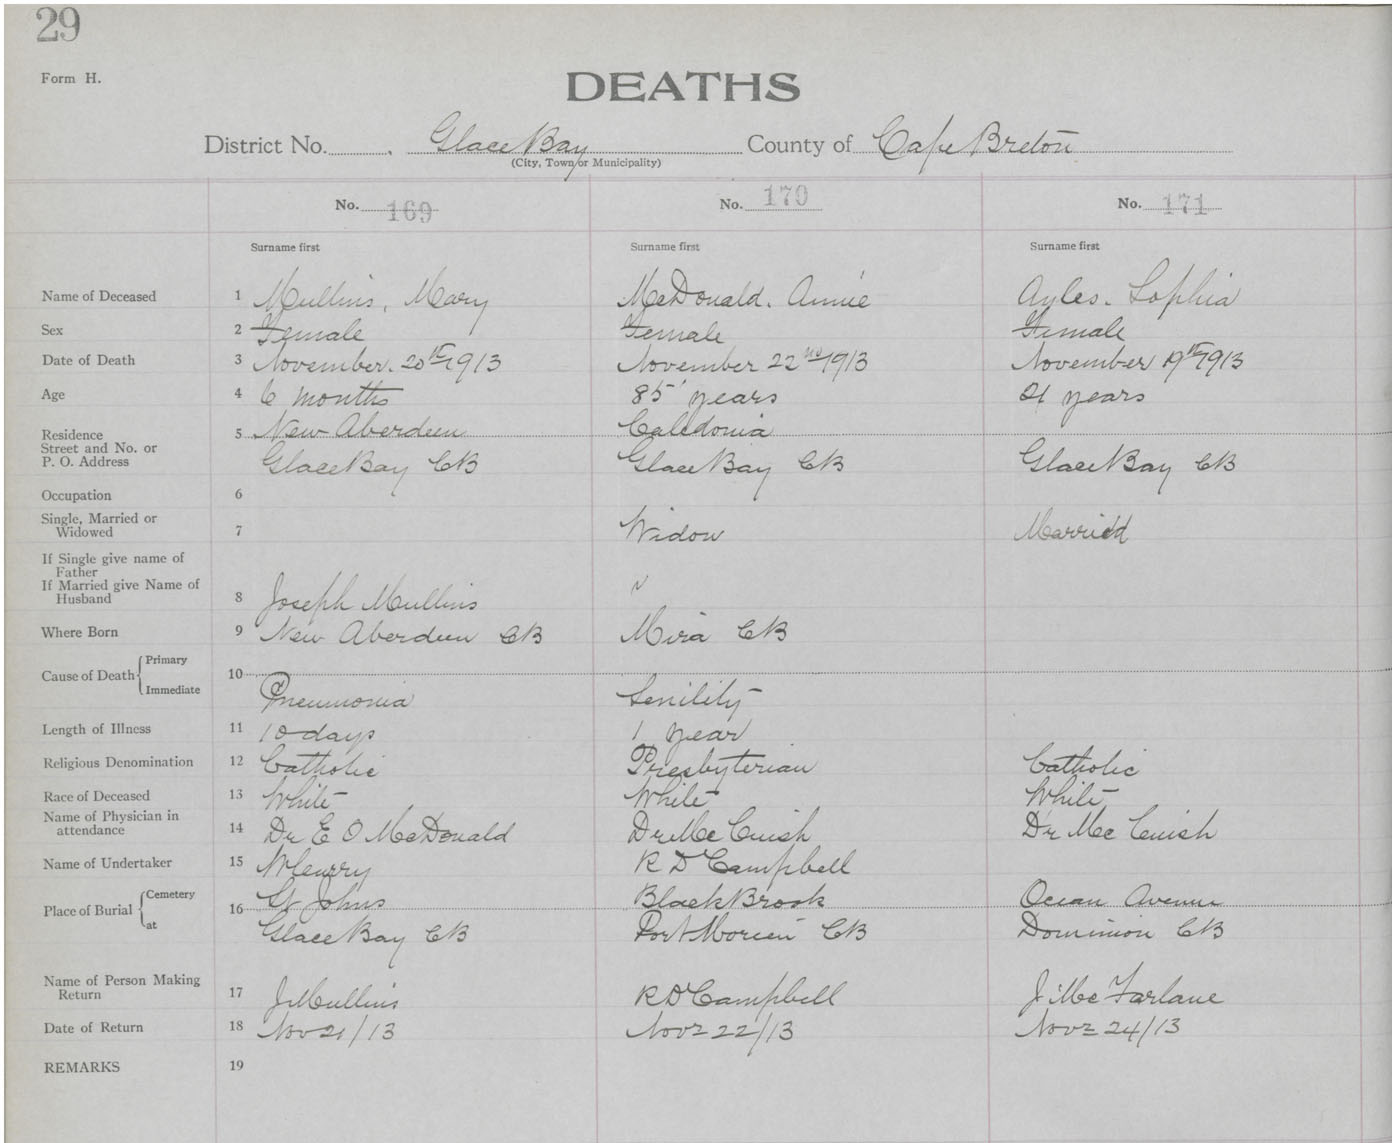 29
Form H.
DEATHS
District No. Glace Bay County of Cape Breton
(City, Town or Municipality)
No. 169 No. 170 No. 171
Surname first Surname first Surname first
Name of Deceased 1 Mullins, Mary McDonald. Annie Ayles. Sophia
Sex 2 Female Female Female
Date of Death 3 November. 20th 1913 November 22nd 1913 November 19th 1913
Age 4 6 months 85 years 21 years
Residence 5 New Aberdeen Caledonia
Street and No. or
P. O. Address Glace Bay CB Glace Bay CB Glace Bay CB
Occupation 6
Single, Married or
Widowed 7 Widow Married
If Single give name of
Father
If Married give Name of
Husband 8 Joseph Mullins
Where Born 9 New Aberdeen CB Mira CB
Cause of Death Primary 10
Immediate Pneumonia Senility
Length of Illness 11 10 days 1 year
Religious Denomination 12 Catholic Presbyterian Catholic
Race of Deceased 13 White White White
Name of Physician in
attendance 14 Dr E O McDonald Dr McCuish Dr McCuish
Name of Undertaker 15 McCurry R D Campbell
Place of Burial Cemetery 16 St Johns Black Brook Ocean Avenue
at Glace Bay CB Port Morien CB Dominion CB
Name of Person Making
Return 17 J Mullins R D Campbell J McFarlane
Date of Return 18 Nov 21/13 Novr 22/13 Novr 24/13
REMARKS 19